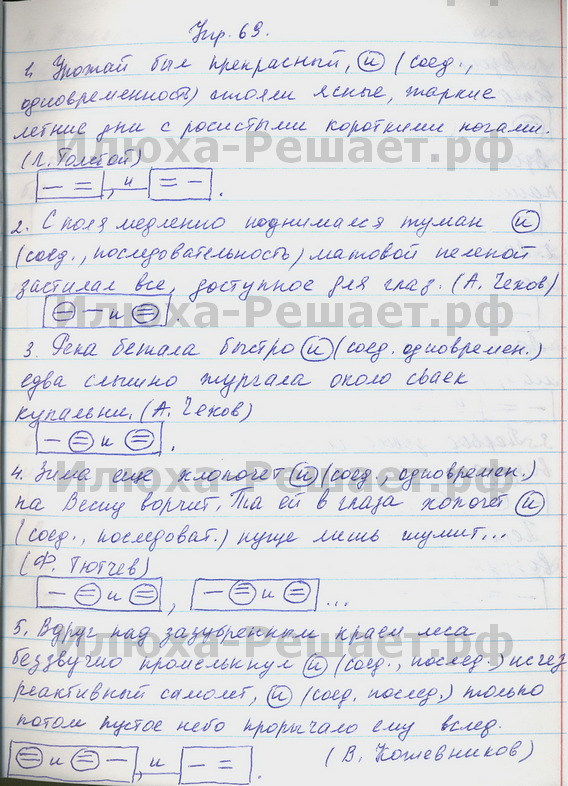 Упр. 69.
1. Урожай был прекрасный, и (соед.,
одновременность) стояли ясные, жаркие
летние дни с росистыми короткими ночами.
(Л. Толстой)
, и .
2. С поля медленно поднимался туман и
(соед., последовательность) матовой пеленой
застилал все, доступное для глаз. (А. Чехов)
и .
3. Река бежала быстро и (соед. одновремен.)
едва слышно журчала около сваек
купальни. (А. Чехов)
и .
4. Зима еще хлопочет и (соед., одновремен.)
на Весну ворчит. Та ей в глаза хохочет и
(соед., последоват.) пуще лишь шумит...
(Ф. Тютчев)
и , и ...
5. Вдруг над зазубренным краем леса
беззвучно промелькнул и (соед., послед.) исчез
реактивный самолет, и (соед. послед.) только
потом пустое небо прорычало ему вслед.
(В. Кожевников)
и , и .
Илюха-Решает.рф
Илюха-Решает.рф
Илюха-Решает.рф
Илюха-Решает.рф
Илюха-Решает.рф